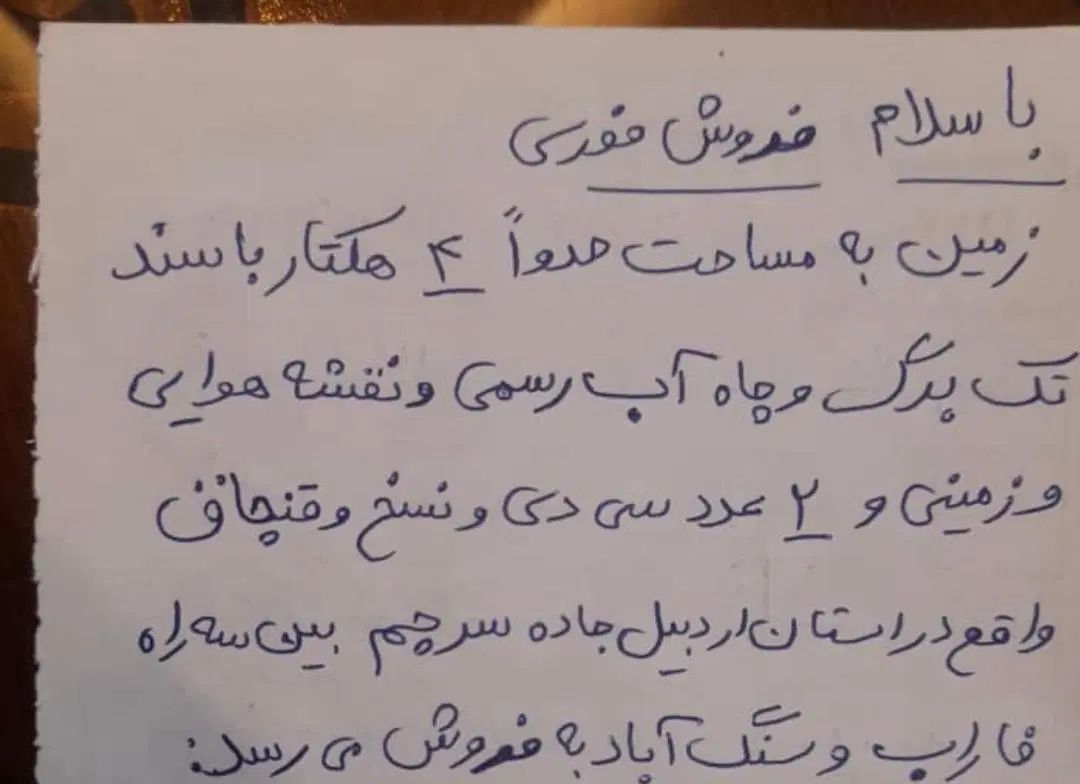 با سلام فروش فوری
زمین به مساحت حدواً ۴ هکتار با سند
تک برگ و چاه آب رسمی و نقشه هوایی
و زمینی و ۲ عدد سی دی و نسخ و قنچاق
واقع در استان اردبیل جاده سرچم بین سه راه
فاراب و سنگ آباد به فروش می رسد: